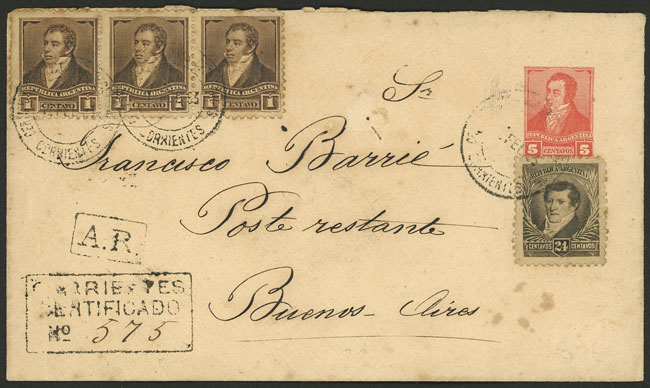 REPUBLICA ARGENTINA REPUBLICA ARGENTINA REPUBLICA ARGENTINA
1 CENTAVO 1 1 CENTAVO 1 1 CENTAVO 1
CORRIENTES CORRIENTES
Sr
REPUBLICA ARGENTINA
5 CENTAVOS 5
CORRIENTES
Francisco Barrié
REPUBLICA ARGENTINA
CENTAVOS 24 CENTAVOS
A.R.
Poste restante
CORRIENTES
CERTIFICADO
Nº 575
Buenos-Aires